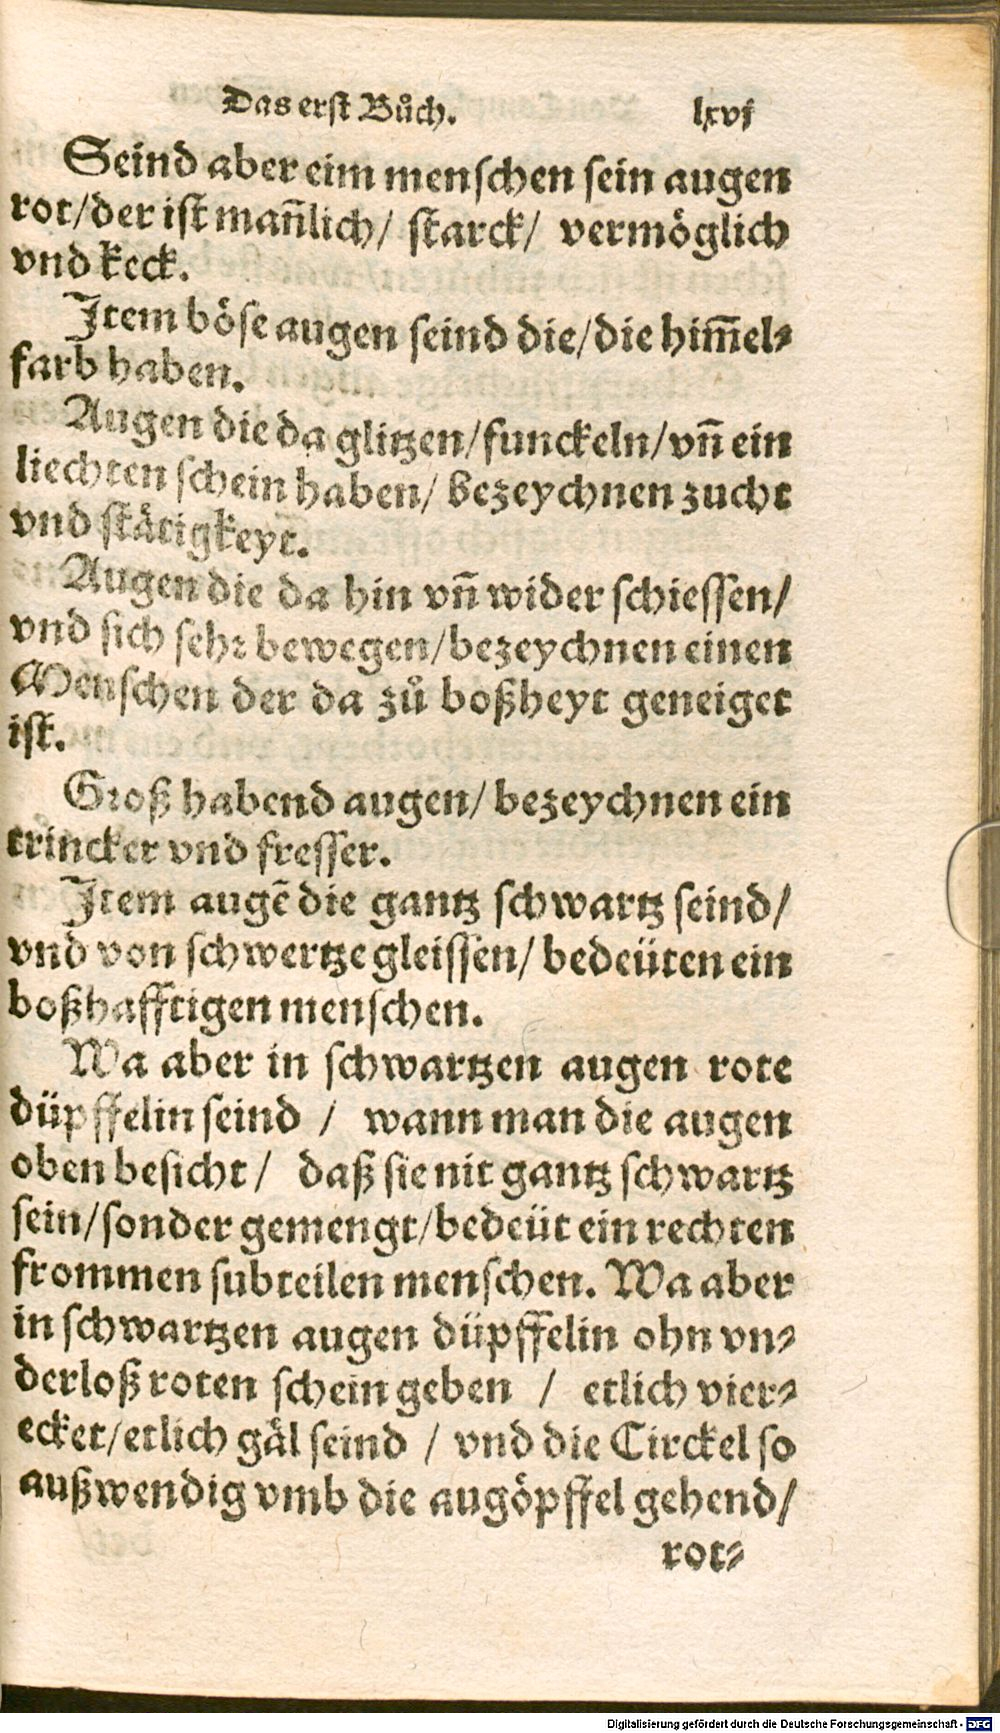 Das erst Bůch. lxvj
Seind aber eim menschen sein augen
rot/der ist man̄lich/ starck/ vermöglich
vnd keck.
Item böse augen seind die/die him̄el⸗
farb haben.
Augen die da glitzen/funckeln/vn̄ ein
liechten schein haben/ bezeychnen zucht
vnd stätigkeyt.
Augen die da hin vn̄ wider schiessen/
vnd sich sehr bewegen/bezeychnen einen
Menschen der da zů boßheyt geneiget
ist.
Groß habend augen/ bezeychnen ein
trincker vnd fresser.
Item augē die gantz schwartz seind/
vnd von schwertze gleissen/ bedeüten ein
boßhafftigen menschen.
Wa aber in schwartzen augen rote
düpffelin seind / wann man die augen
oben besicht/ daß sie nit gantz schwartz
sein/sonder gemengt/bedeüt ein rechten
frommen subteilen menschen. Wa aber
in schwartzen augen düpffelin ohn vn⸗
derloß roten schein geben / etlich vier⸗
ecket/etlich gäl seind / vnd die Circkel so
außwendig vmb die augöpffel gehend/
rot⸗
Digitalisierung gefördert durch die Deutsche Forschungsgemeinschaft - DFG